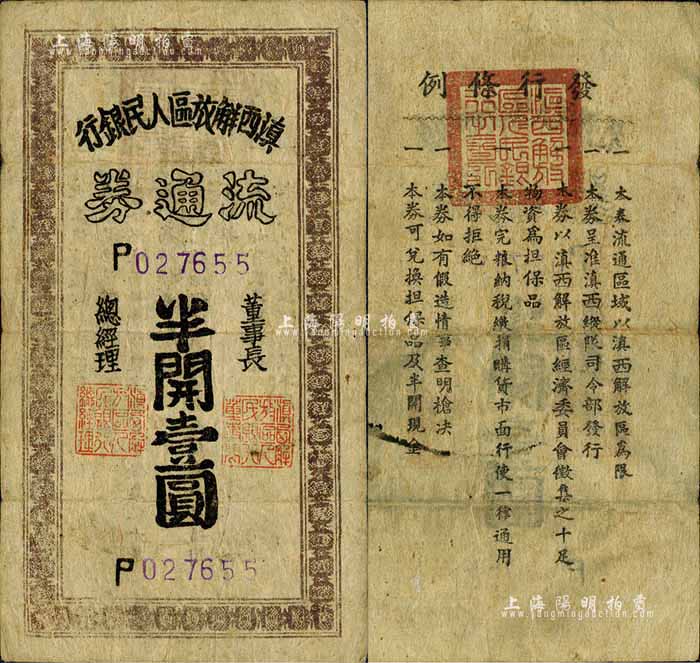 上海陽明拍賣
滇西解放區人民銀行
流通券
P027655
董事長
半開壹圓
總經理
P027655
上海陽明拍賣
www.yangmingauction.com
發行條例
一 本券流通區域以滇西解放區爲限
一 本券呈准滇西縱隊司令部發行
一 本券以滇西解放區經濟委員會徵集之十足
物資爲担保品
一 本券完粮納稅繳捐購貨市面行使一律通用
不得拒絶
一 本券如有假造情事查明槍决
一 本券可兌換担保品及半開現金
上海陽明拍賣
www.yangmingauction.com